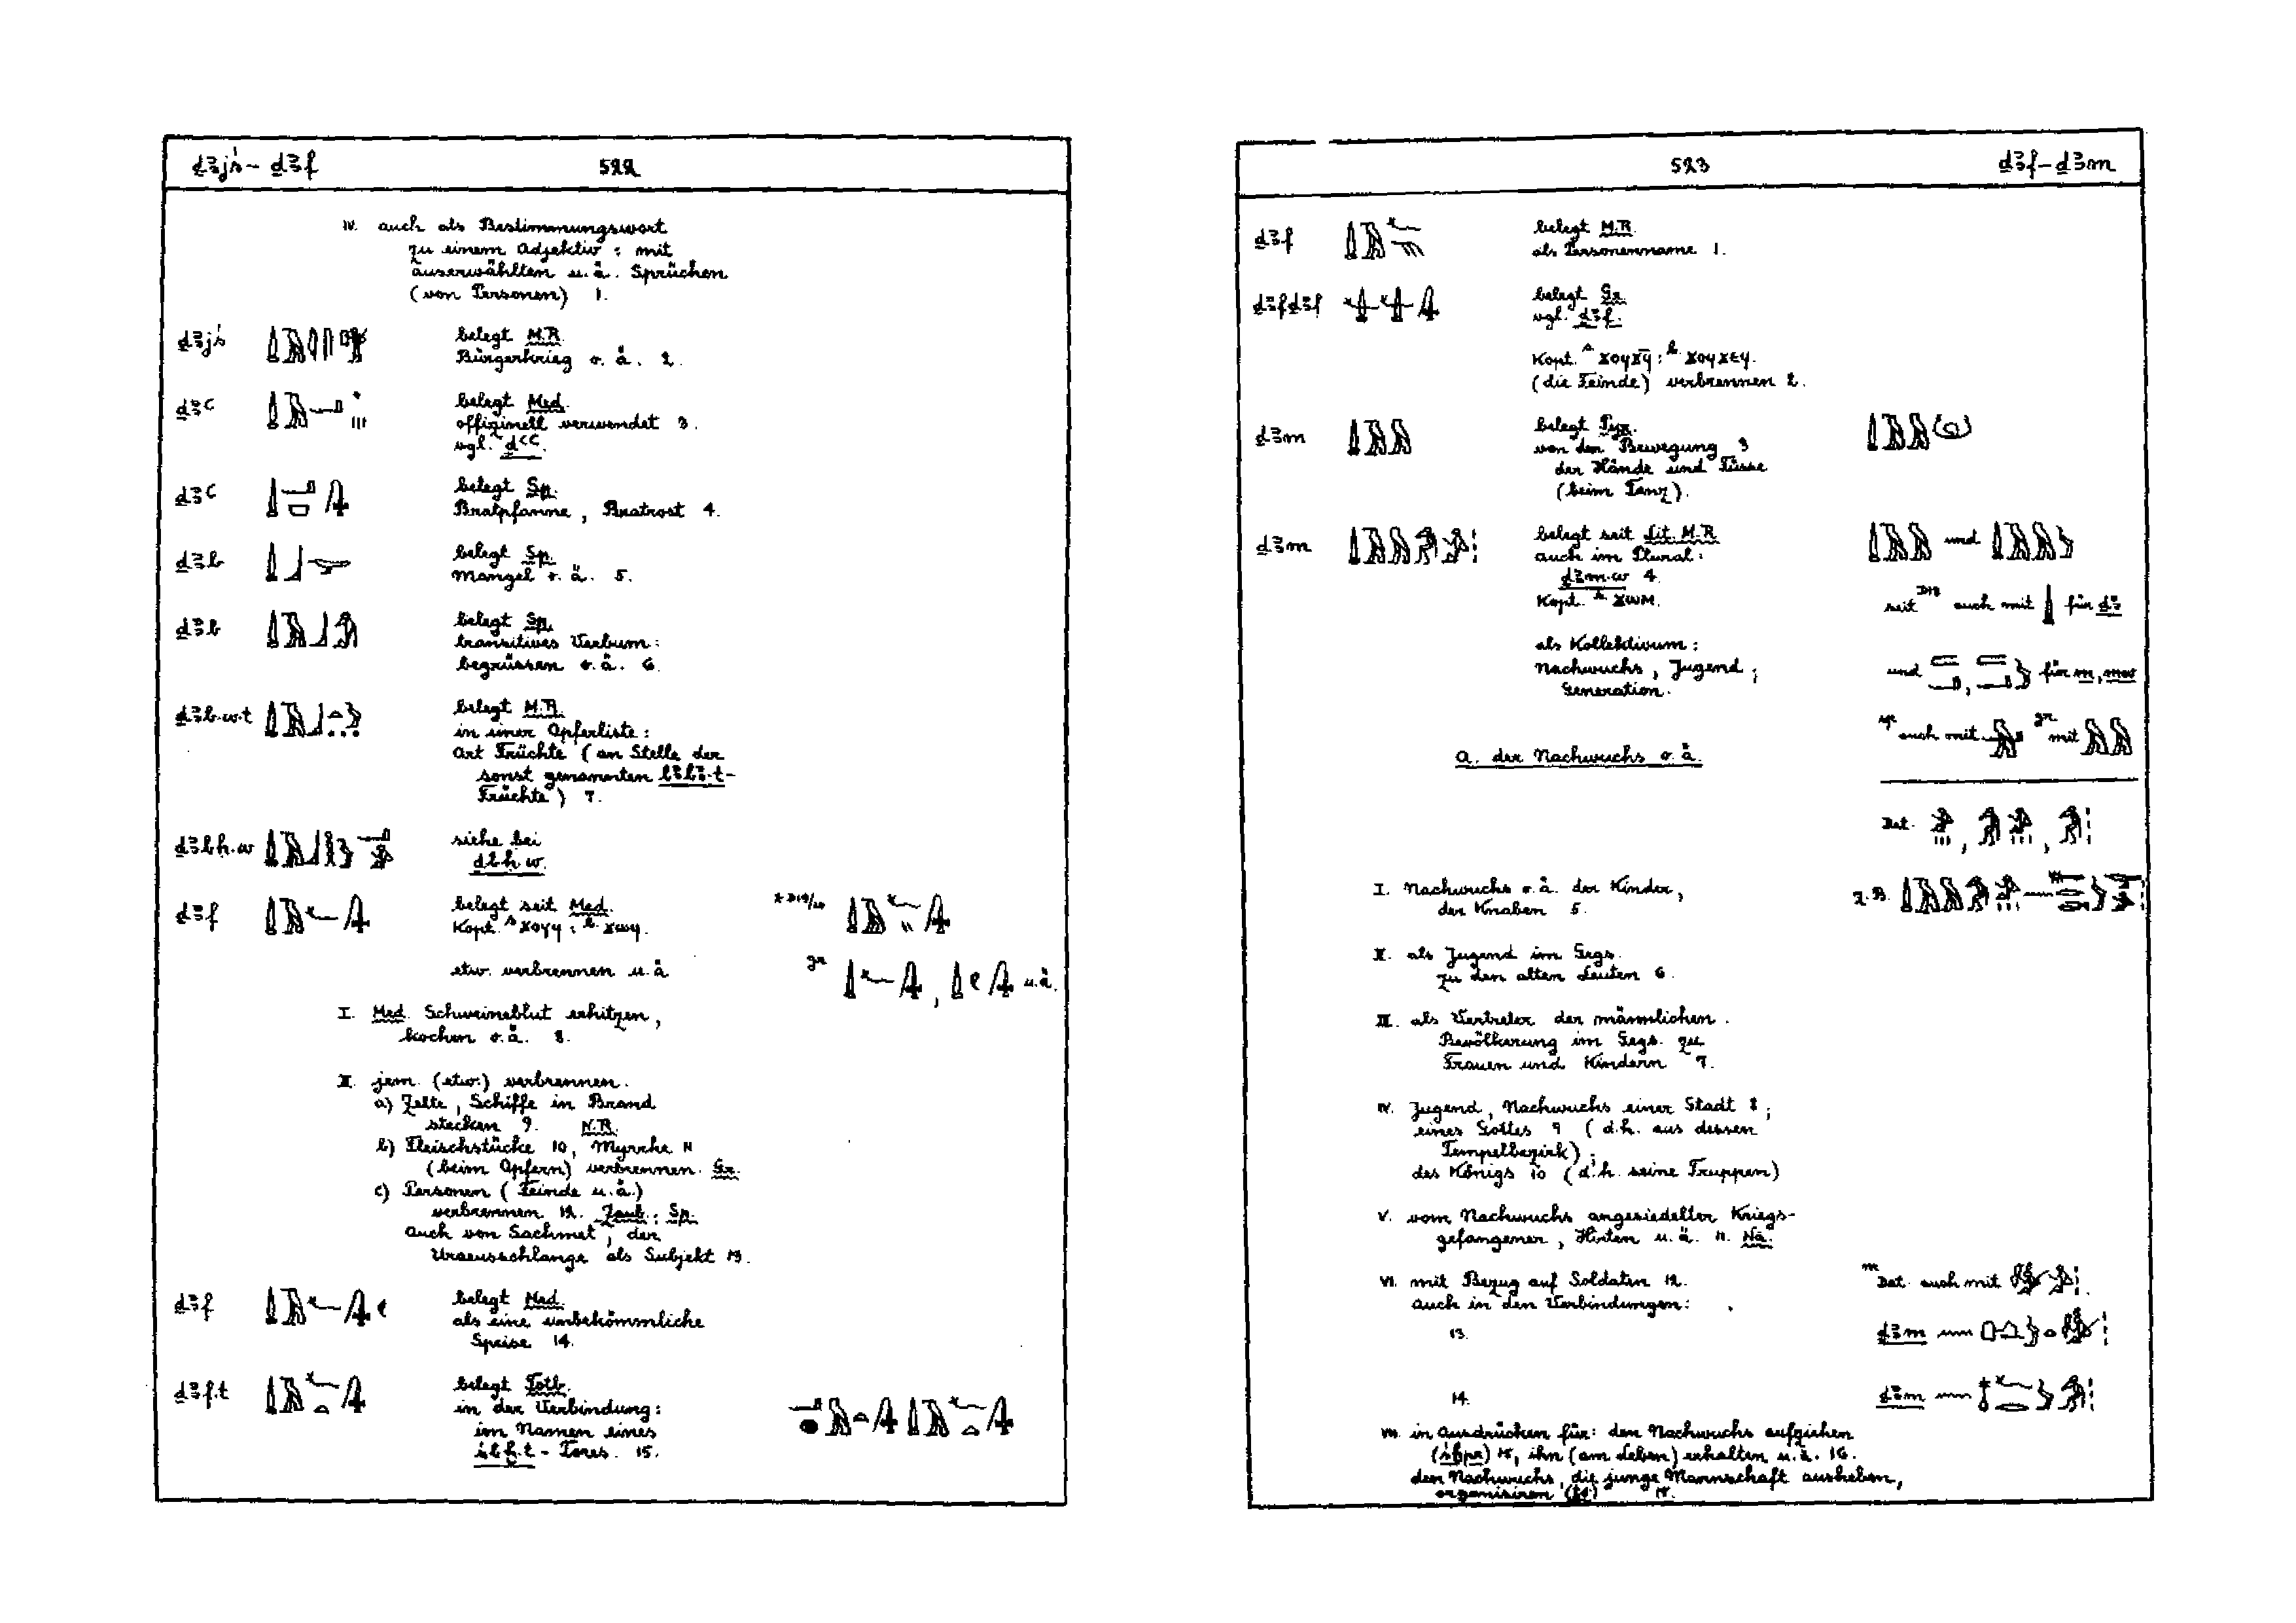 ḏꜣjś - ḏꜣf 522
IV. auch als Bestimmungswort
zu einem Adjektiv : mit
auserwählten u.ä. Sprüchen
(von Personen) 1.
ḏꜣjś belegt M.R.
Bürgerkrieg o.ä. 2.
ḏꜣꜥ belegt Med.
offizinell verwendet 3.
vgl. ḏꜥꜥ.
ḏꜣꜥ belegt Sp.
Bratpfanne, Bratrost 4.
ḏꜣb belegt Sp.
Mangel o.ä. 5.
ḏꜣb belegt Sp.
transitives Verbum:
begrüssen o.ä. 6.
ḏꜣb.w.t belegt M.R.
in einer Opferliste:
Art Früchte (an Stelle der
sonst genannten bꜣbꜣ.t-
Früchte) 7.
ḏꜣbḥ.w siehe bei
dbḥ.w.
ḏꜣf belegt seit Med.
Kopt. ˢ ϫⲟⲩϥ : ᵇ ϫⲱϥ.
etw. verbrennen u.ä. gr u.ä.
I. Med. Schweineblut erhitzen,
kochen o.ä. 8.
II. jem. (etw.) verbrennen.
a) Zelte, Schiffe in Brand
stecken 9. N.R.
b) Fleischstücke 10, Myrrhe 11
(beim Opfern) verbrennen. Gr.
c) Personen (Feinde u.ä.)
verbrennen 12. Zaub.; Sp.
auch von Sachmet, der
Uräusschlange als Subjekt 13.
ḏꜣf belegt Med.
als eine unbekömmliche
Speise 14.
ḏꜣf.t belegt Totb.
in der Verbindung:
im Namen eines
śbḫ.t - Tores. 15.
523 ḏꜣf - ḏꜣm
ḏꜣf belegt M.R.
als Personenname 1.
ḏꜣfḏꜣf belegt Gr.
vgl. ḏꜣf.
Kopt. ˢ ϫⲟϥϫϥ̄ : ᵇ ϫⲟϥϫⲉϥ.
(die Feinde) verbrennen 2.
ḏꜣm belegt Pyr.
von der Bewegung 3
der Hände und Füsse
(beim Tanz).
ḏꜣm belegt seit Lit. M.R. und
auch im Plural:
ḏꜣm.w 4.
Kopt. ᵇ ϫⲱⲙ. seit D18 auch mit für ḏꜣ
als Kollektivum:
Nachwuchs, Jugend, und , für m, mw
Generation.
sp auch mit gr mit
A. der Nachwuchs o.ä.
Det. , ,
I. Nachwuchs o.ä. der Kinder, z.B.
der Knaben 5.
II. als Jugend im Gegs.
zu den alten Leuten 6.
III. als Vertreter der männlichen
Bevölkerung im Gegs. zu
Frauen und Kindern 7.
IV. Jugend, Nachwuchs einer Stadt 8;
eines Gottes 9 (d.h. aus dessen
Tempelbezirk);
des Königs 10 (d.h. seine Truppen)
V. vom Nachwuchs angesiedelter Kriegs-
gefangener, Hirten u.ä. 11. Nä.
VI. mit Bezug auf Soldaten 12. Det. auch mit
auch in den Verbindungen:
13. ḏꜣm
14. ḏꜣm
VII. in Ausdrücken für: den Nachwuchs aufziehen
(śḫpr) 15, ihn (am Leben) erhalten u.ä. 16.
den Nachwuchs, die junge Mannschaft ausheben,
organisiren (ṯś) 17.